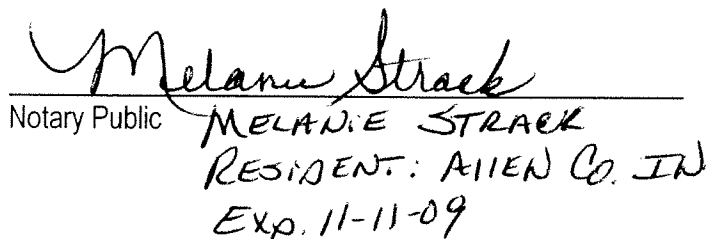 Melanie Strack
Notary Public MELANIE STRACK
RESIDENT: ALLEN CO. IN
EXP. 11-11-09